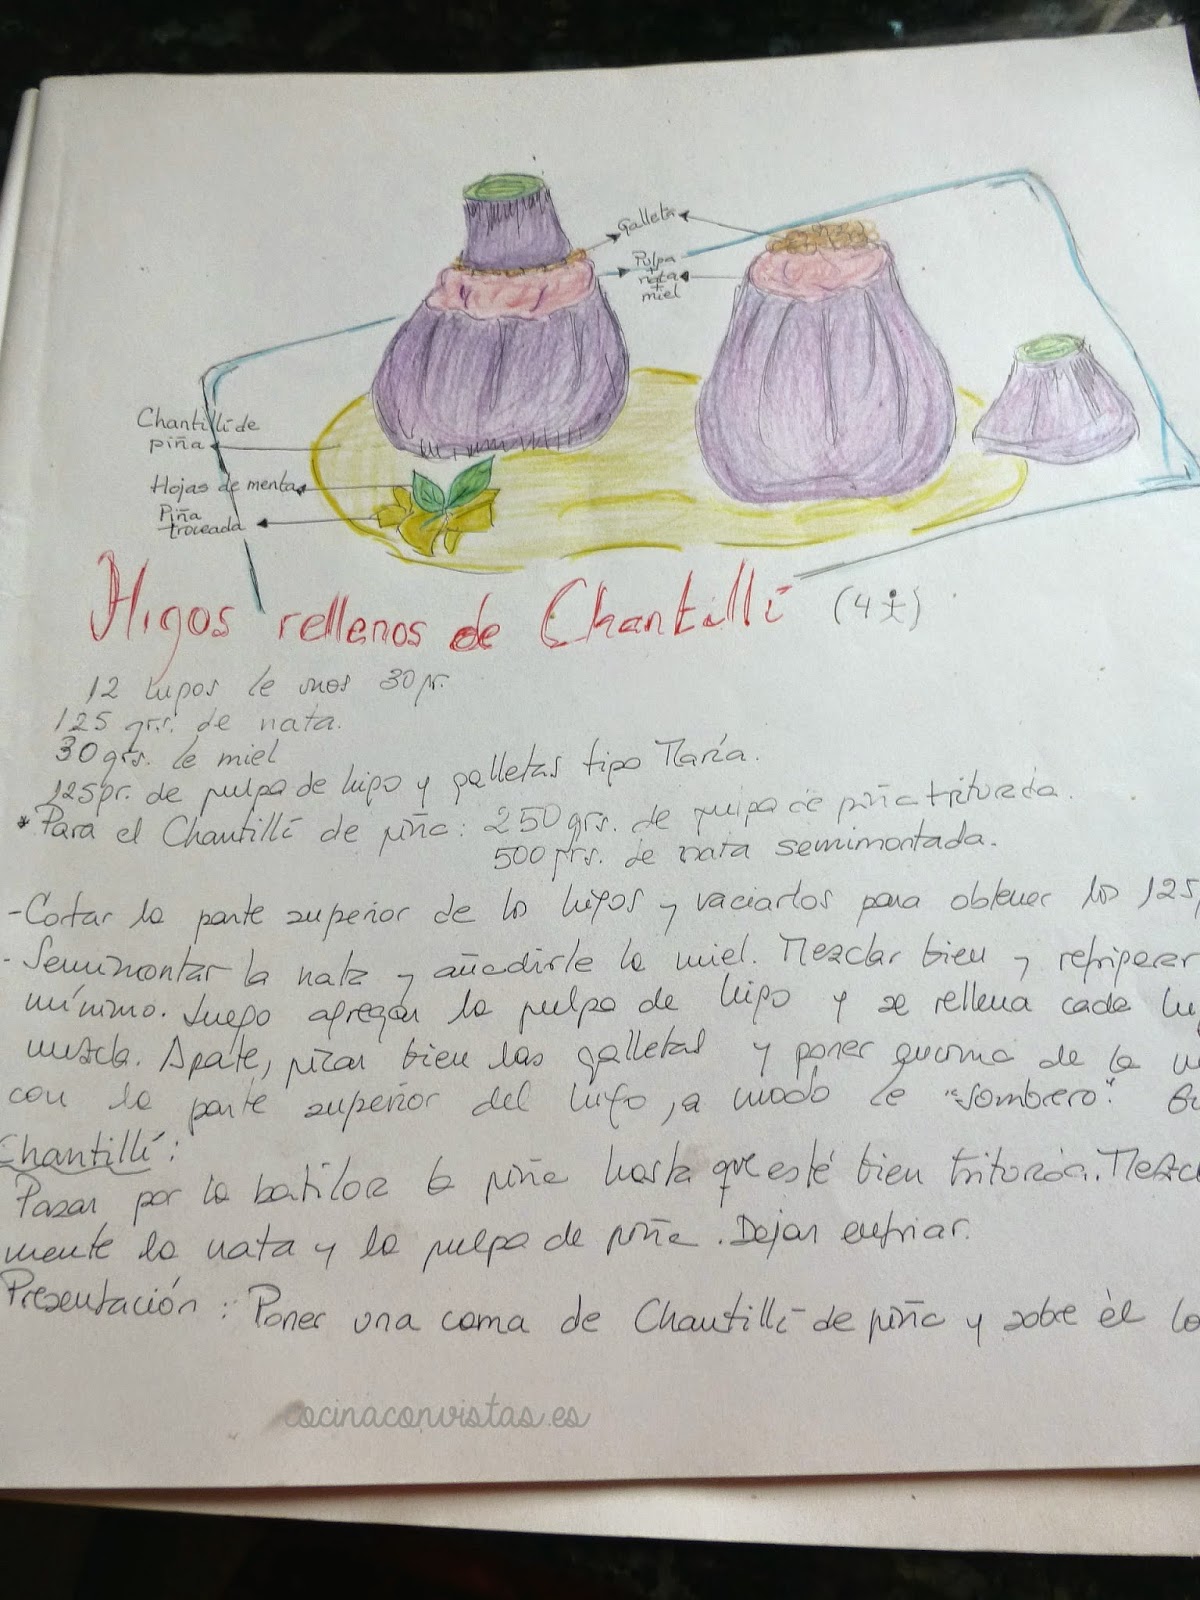 Galleta
Pulpa
+
nata
+
miel
Chantillí de
piña
Hojas de menta
Piña
troceada
Higos rellenos de Chantillí (4)
12 higos de unos 30 gr.
125 grs. de nata.
30 grs. de miel
125 gr. de pulpa de higo y galletas tipo María.
* Para el Chantillí de piña: 250 grs. de pulpa de piña triturada.
500 grs. de nata semimontada.
- Cortar la parte superior de los higos y vaciarlos para obtener los 125
- Semimontar la nata y añadirle la miel. Mezclar bien y refrigerar
mínimo. Luego agregar la pulpa de higo y se rellena cada
mezcla. Aparte, picar bien las galletas y poner encima de la
con la parte superior del higo, a modo de "sombrero".
Chantillí:
Pasar por la batidora la piña hasta que esté bien triturada. Mezcla
mente la nata y la pulpa de piña. Dejar enfriar.
Presentación: Poner una cama de Chantillí de piña y sobre él lo
cocinaconvistas.es